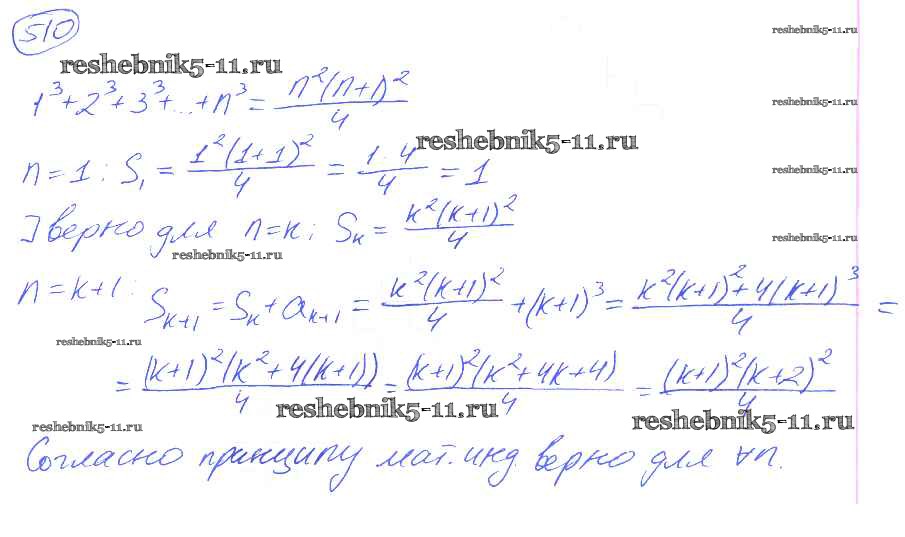 510
reshebnik5-11.ru
reshebnik5-11.ru
1³+2³+3³+...+n³ = n²(n+1)²/4
reshebnik5-11.ru
reshebnik5-11.ru
n=1: S₁ = 1²(1+1)²/4 = 1·4/4 = 1
reshebnik5-11.ru
] верно для n=k; Sₖ = k²(k+1)²/4
reshebnik5-11.ru
reshebnik5-11.ru
n=k+1: Sₖ₊₁ = Sₖ + aₖ₊₁ = k²(k+1)²/4 + (k+1)³ = k²(k+1)²+4(k+1)³/4 =
reshebnik5-11.ru
= (k+1)²(k²+4(k+1))/4 = (k+1)²(k²+4k+4)/4 = (k+1)²(k+2)²/4
reshebnik5-11.ru
reshebnik5-11.ru
reshebnik5-11.ru
Согласно принципу мат. инд. верно для ∀n.